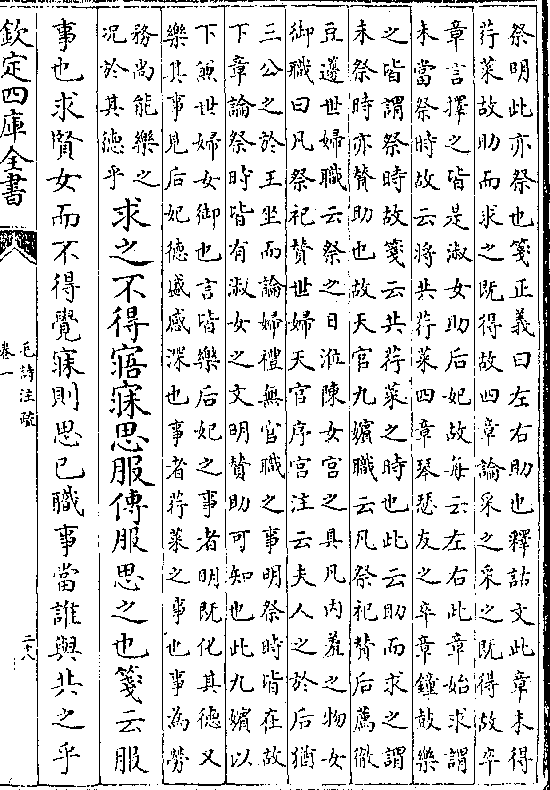 祭明此亦祭也箋正義曰左右助也釋詁文此章未得
荇菜故助而求之既得故四章論采之采之既得故卒
章言擇之皆是淑女助后妃故每云左右此章始求謂
未當祭時故云將共荇菜四章琴瑟友之卒章鐘鼓樂
之皆謂祭時故箋云共荇菜之時也此云助而求之謂
未祭時亦贊助也故天官九嬪職云凡祭祀贊后薦徹
豆籩世婦職云祭之日涖陳女宮之具凡内羞之物女
御職曰凡祭祀贊世婦天官序官注云夫人之於后猶
三公之於王坐而論婦禮無官職之事明祭時皆在故
下章論祭時皆有淑女之文明贊助可知也此九嬪以
下兼世婦女御也言皆樂后妃之事者明既化其德又
樂其事見后妃德盛感深也事者荇菜之事也事為勞
務尚能樂之
況於其德乎
求之不得寤寐思服傳服思之也箋云服
事也求賢女而不得覺寐則思已職事當誰與共之乎
欽定四庫全書
毛詩注疏
卷一
二十八